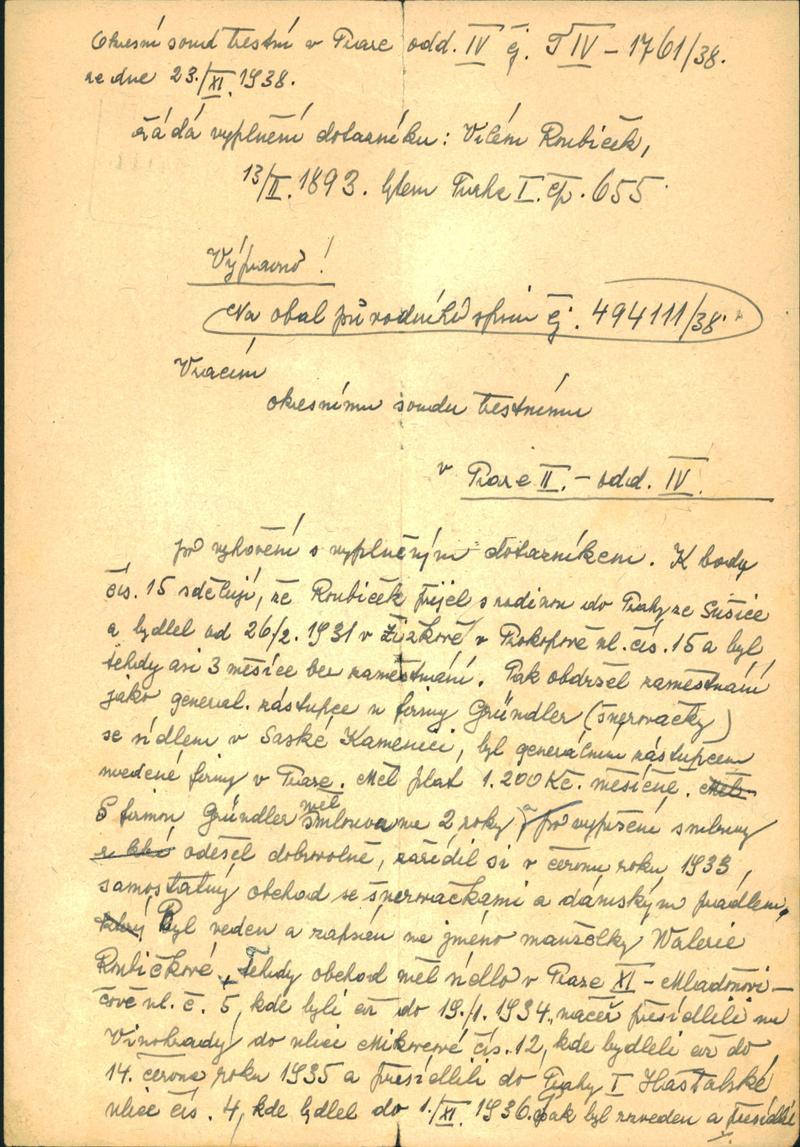 Okresní soud trestní v Praze odd. IV čj. T IV – 1761/38.
ze dne 23./XI. 1938.
žádá vyplnění dotazníku: Vilém Roubíček,
13/II. 1893. bytem Praha I. čp. 655
Výpravně!
Na obal původního spisu čj. 494111/38.
Vracím
okresnímu soudu trestnímu
v Praze II. – odd. IV.
po vyhovění s vyplněným dotazníkem. K bodu
čís. 15 sděluji, že Roubíček přijel s rodinou do Prahy ze Sušice
a bydlel od 26/2. 1931 v Žižkově v Prokopově ul. čís. 15 a byl
tehdy asi 3 měsíce bez zaměstnání. Pak obdržel zaměstnání
jako general. zástupce u firmy Gründler (šněrovačky)
se sídlem v Saské Kamenici, byl generálním zástupcem
uvedené firmy v Praze. Měl plat 1.200 Kč. měsíčně. Měl
S firmou Gründler měl smlouvu na 2 roky a po vypršení smlouvy
odešel dobrovolně, zařídil si v červnu roku 1933,
samostatný obchod se šněrovačkami a dámským prádlem,
který Byl veden a zapsán na jméno manželky Valerie
Roubíčkové. Tehdy obchod měl sídlo v Praze XI – Mladoňovi–
čově ul. č. 5, kde byli až do 19./1. 1934, načež přesídlili na
Vinohrady do ulice čís. 12, kde bydleli až do
14. června roku 1935 a přesídlili do Prahy I Haštalské
ulice čís. 4, kde bydlel do 1./XI. 1936. pak byl rozveden a přesídlil